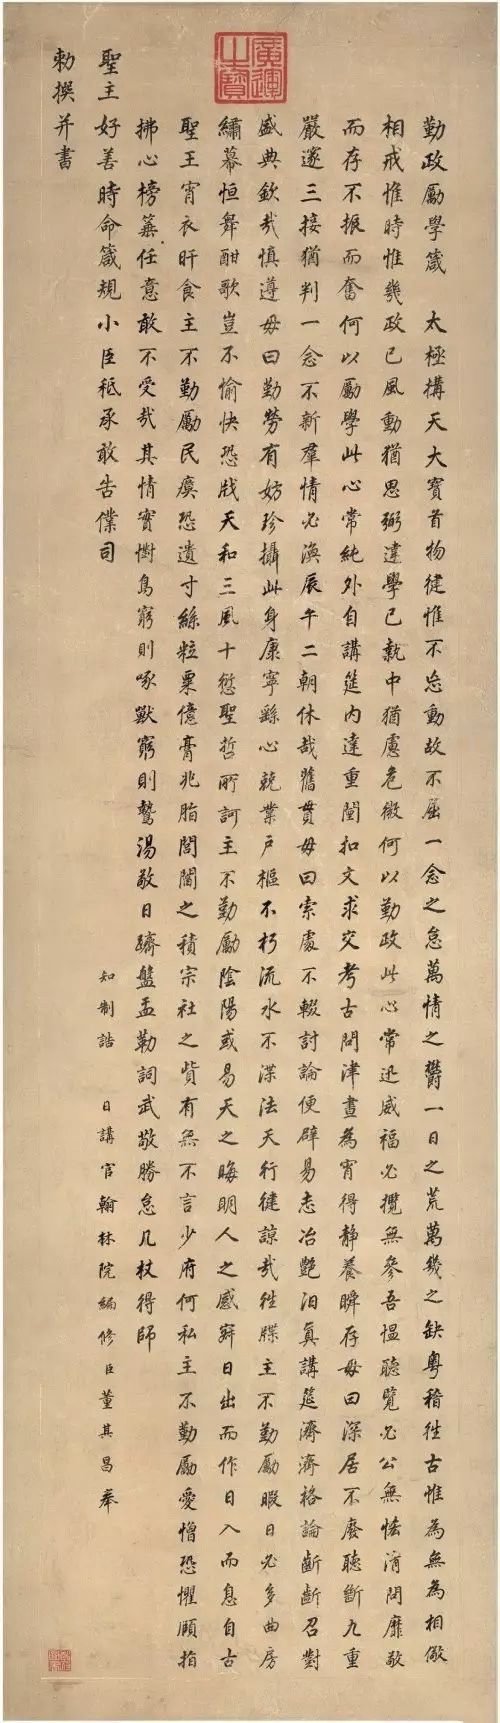 廣運之寶
勤政勵學箴　太極構天大寶首物健惟不怠動故不屈一念之怠萬情之欝一日之荒萬幾之缺粵稽徃古惟為無為相儆
相戒惟時惟幾政已風動猶思弼違學已執中猶慮危微何以勤政此心常迅威福必攬無參吾愠聽覽必公無恡清問靡敢
而存不振而奮何以勵學此心常純外自講筵內達重闈扣文求交考古問津晝為宵得靜養瞬存毋曰深居不廢聽斷九重
嚴邃三接猶判一念不新羣情必渙辰午二朝休哉舊貫毋曰索處不輟討論便辟易志冶艷汩真講筵濟濟格論齗齗召對
盛典欽哉慎遵毋曰勤勞有妨珍攝此身康寧繇心兢業戶樞不朽流水不渫法天行健諒哉徃牒主不勤勵暇日必多曲房
繡幕恒舞酣歌豈不愉快恐戕天和三風十愆聖哲所訶主不勤勵陰陽或易天之晦明人之感辟日出而作日入而息自古
聖王宵衣旰食主不勤勵民瘼恐遺寸絲粒粟億膏兆脂閭閻之積宗社之貲有無不言少府何私主不勤勵愛憎恐懼頤指
拂心榜箠任意敢不受哉其情實懟鳥窮則啄獸窮則鷙湯敬日躋盤盂勒詞武敬勝怠几杖得師
聖主好善時命箴規小臣秪承敢告僕司
知制誥　日講官翰林院編修臣董其昌奉
勅撰并書